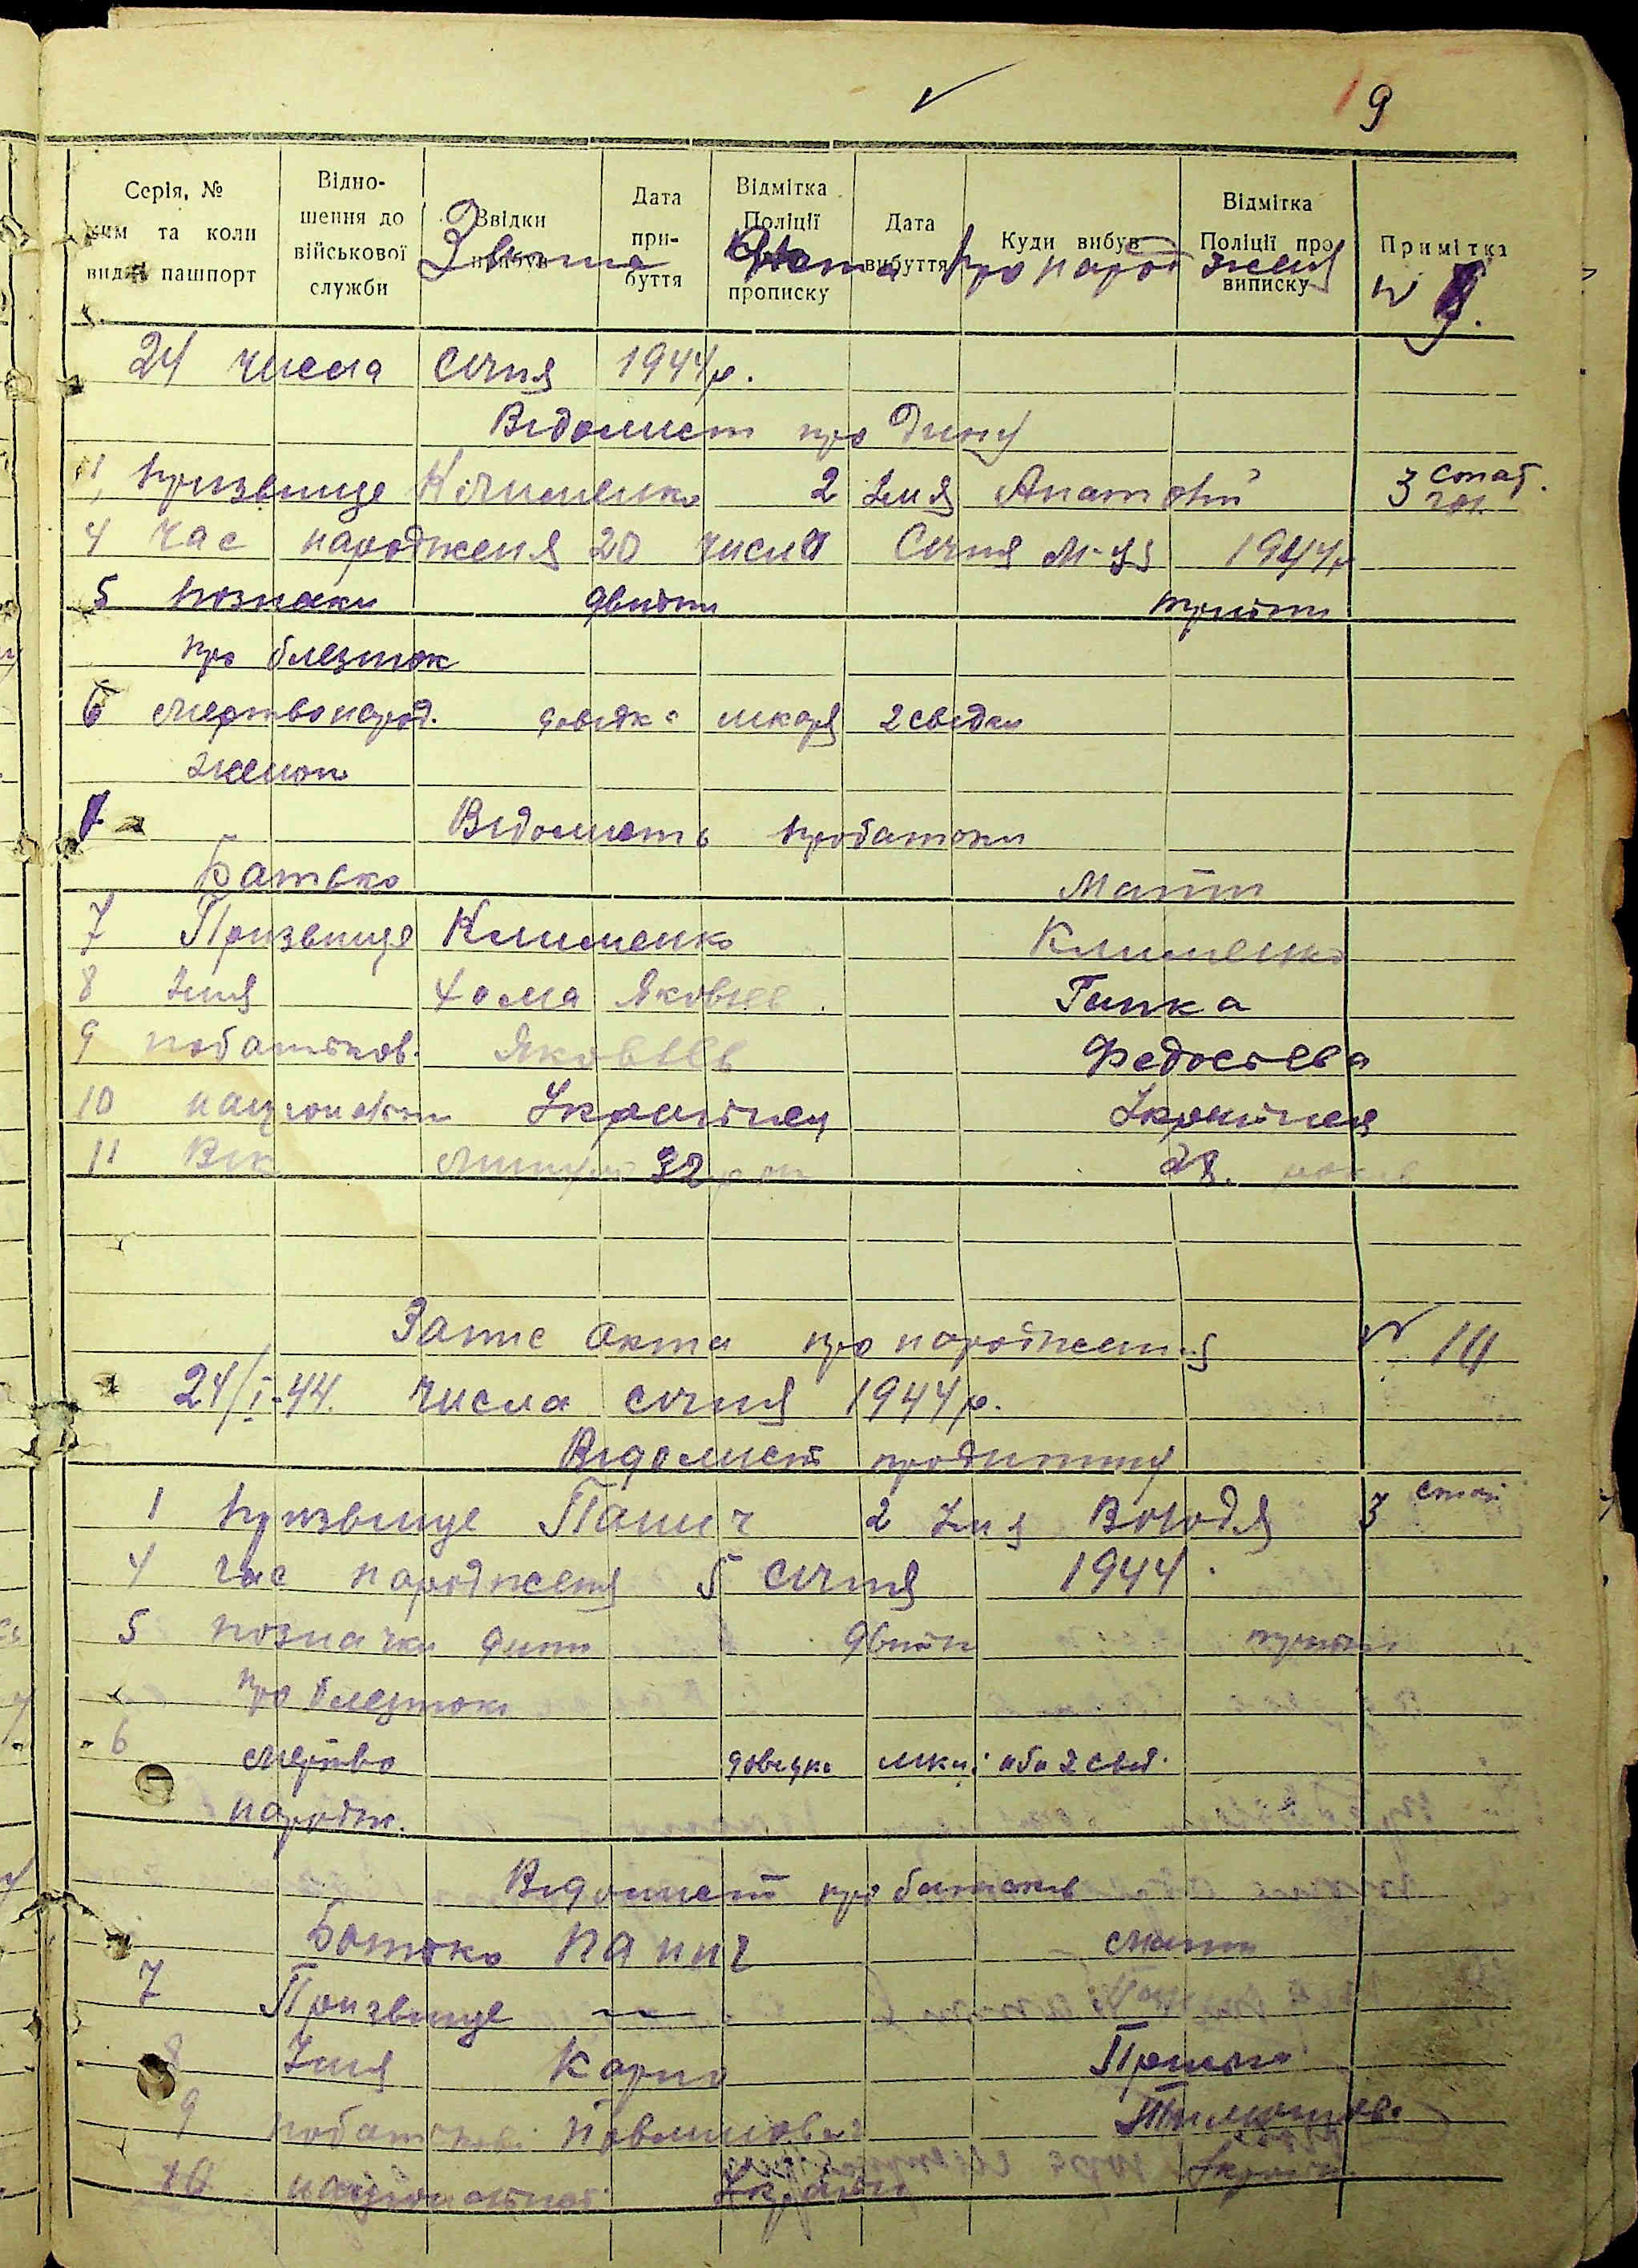 9
Серія, №
ким та коли
видан пашпорт
Відно-
шення до
військової
служби
Звідки
прибув
Дата
при-
буття
Відмітка
Поліції
прописку
Дата
вибуття
Куди вибув
Відмітка
Поліції про
виписку
Примітка
Акта про народження № 9.
24 числа Січня 1944 р.
Відомист про дитину
1, призвище Клименко 2 Імя Анатолій 3 стат. чол.
4 час народженя 20 числа Січня м-ця 1944р
5 познаки двійти трийти
про блезток
6 мертвонарод. довідка лікаря 2 свідки
женом
Відомисть про батьки
Батько Мати
7 Призвище Клименко Клименко
8 Імя Хома Яковлев Гапка
9 побатьков. Яковлев Федосієва
10 націонольни Українец Українця
11 Вік 32 28. років
Запис Акта про народження № 14
24/I-44. числа січня 1944 р.
Відомист про дитину
1 призвище Панич 2 Імя Володя 3 стат
4 час народженя 5 січня 1944.
5 позначки дити двійти трийти
про блезток
6 мертво довідка лікар. або 2 свід.
народж.
Відомист про батьків
Батько Панич мати
7 Призвище —〃—
8 Імя Карпо
9 побатькові
10 національност. Україн